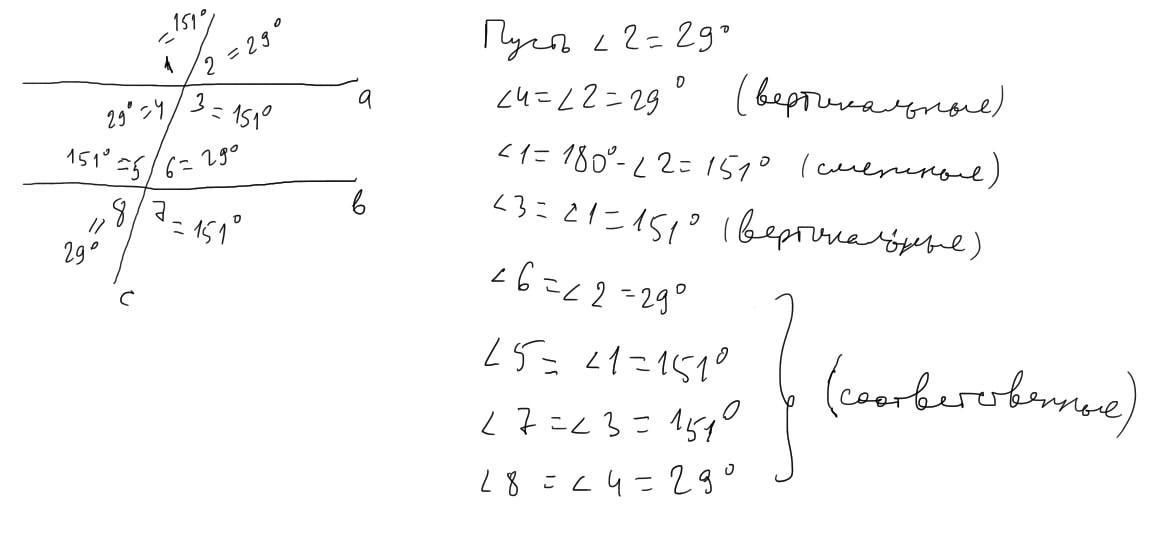 = 151°
1 2 = 29°
a
29° = 4 3 = 151°
151° = 5 6 = 29°
b
8 7 = 151°
= 29°
c
Пусть ∠2 = 29°
∠4 = ∠2 = 29° (вертикальные)
∠1 = 180° - ∠2 = 151° (смежные)
∠3 = ∠1 = 151° (вертикальные)
∠6 = ∠2 = 29°
∠5 = ∠1 = 151°
∠7 = ∠3 = 151°
∠8 = ∠4 = 29°
(соответственные)